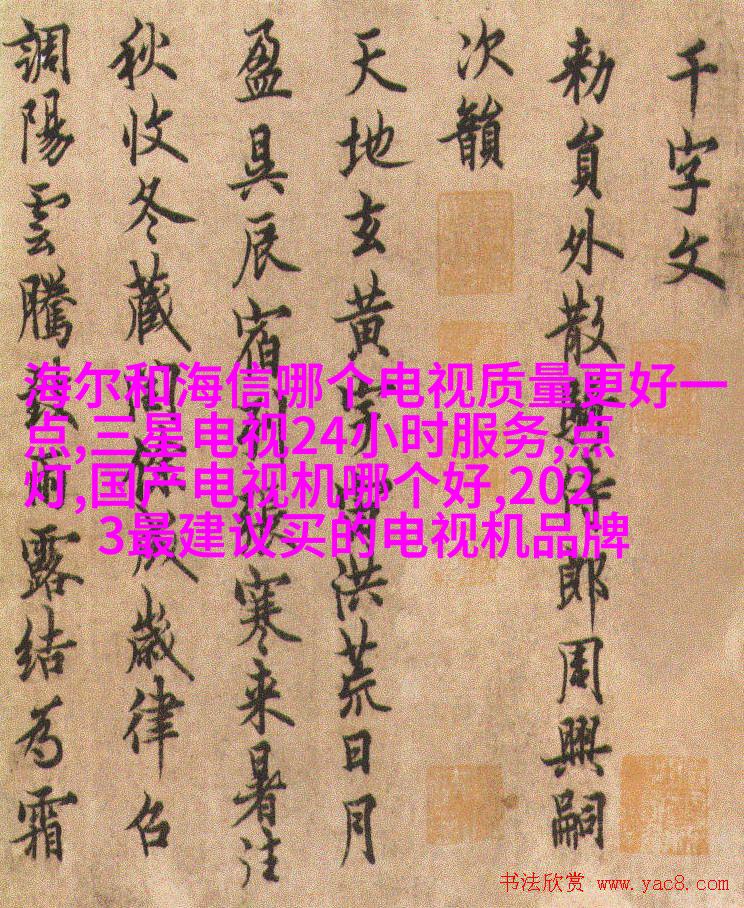 千字文
勅員外散騎侍郎周興嗣
次韻
天地玄黄宇宙洪荒日月
盈昃辰宿列張寒来暑往
秋收冬藏閏餘成歲律召
調陽雲騰致雨露結為霜
海尔和海信哪个电视质量更好一
点,三星电视24小时服务,点
灯,国产电视机哪个好,202
3最建议买的电视机品牌
书法欣赏 www.yac8.com